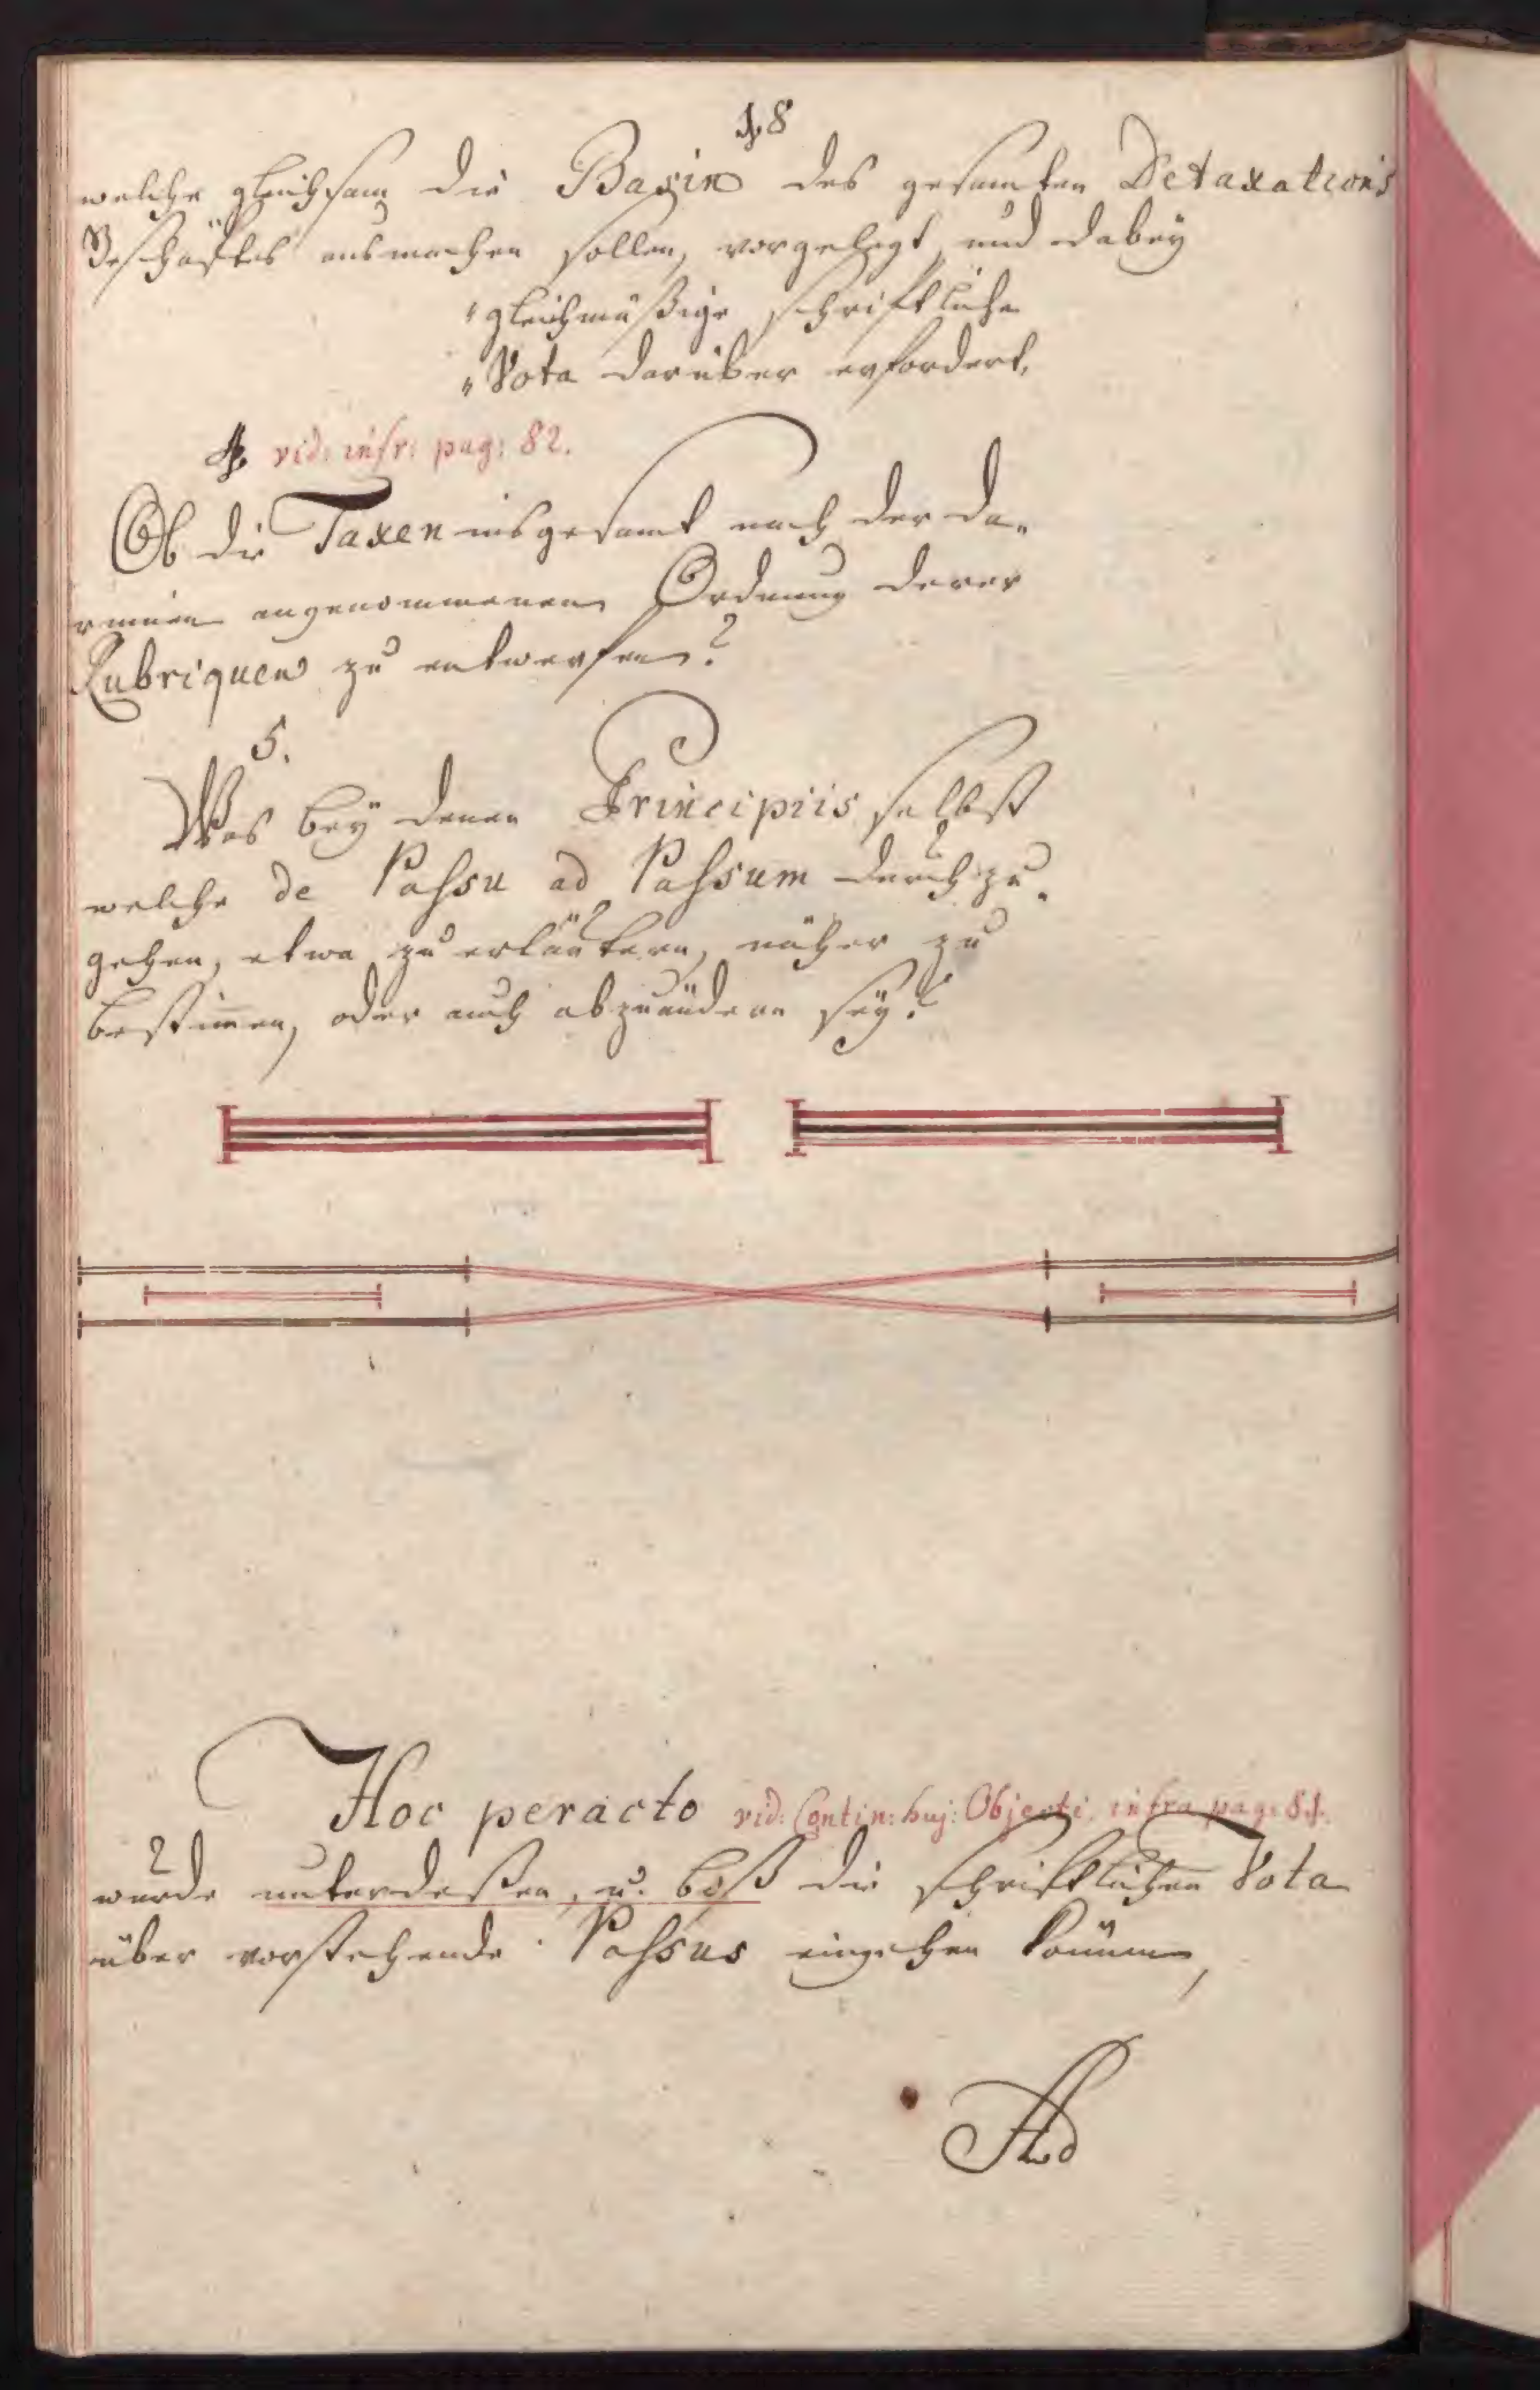 18
welche gleichsam die Basin des gesamten Detaxations
Geschäftes ausmachen sollen, vorgelegt, und dabey
"gleichmäßige schriftliche
"Vota darüber erfordert.
4. vid: infr: pag: 82.
Ob die Taxen insgesamt nach der da-
rinnen angenommenen Ordnung derer
Rubriquen zu entwerfen?
5.
Was bey denen Principiis selbst
welche de Passu ad Passum durchzu-
gehen, etwa zu erläutern, näher zu
bestim̄en, oder auch abzuändern sey?
Hoc peracto vid: Contin: huj: Objecti. infra pag: 81.
wurde unterdeßen, u. biß die schriftlichen Vota
über vorstehende Passus eingehen können,
Ad